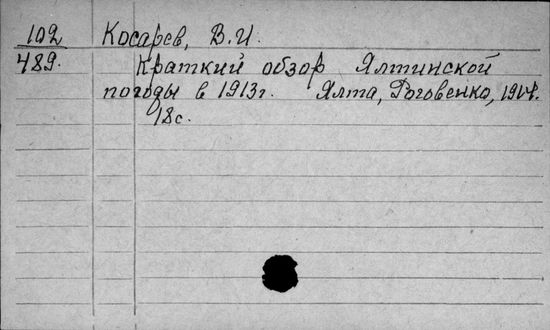 102 Косарев, В.И.
489. Краткий обзор Ялтинской
погоды в 1913г. Ялта, Роговенко, 1914.
18с.